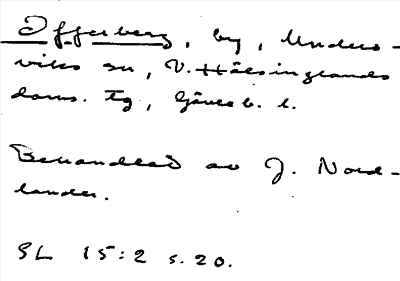 Offerberg, by, Unders-
viks sn, V. Hälsinglands
doms. tg, Gävleb. l.
Behandlad av J. Nord-
lander.
SL 15:2 s. 20.